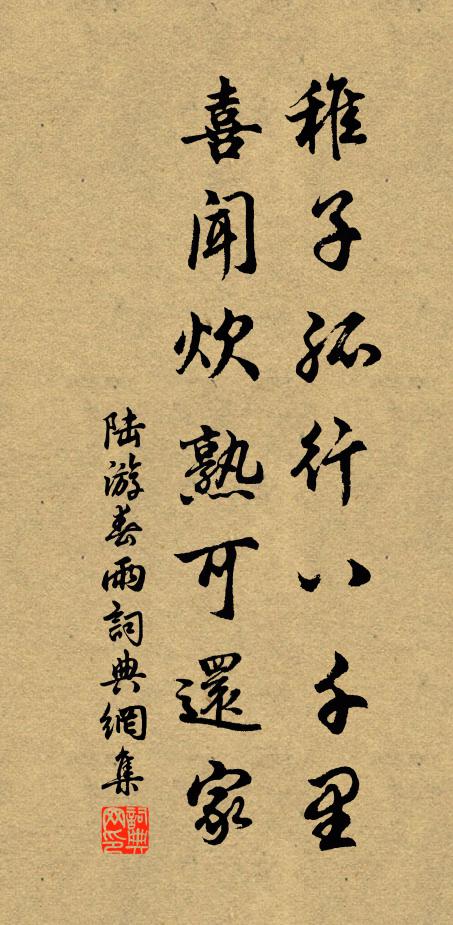 稚子孤行八千里
喜闻炊熟可還家
陆游春雨詞典網集
詞典網印